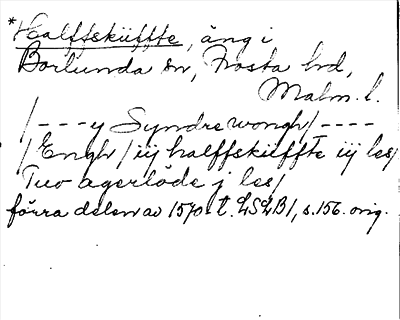 *Halffskiffte, äng i
Borlunda sn, Frosta hd,
Malm. l.
/---y Syndre wongh/----
/Engh/ iij halffskiffte iij les/
Tuo agerlöde j les/
förra delen av 1570-t. LSLB1, s. 156. orig.